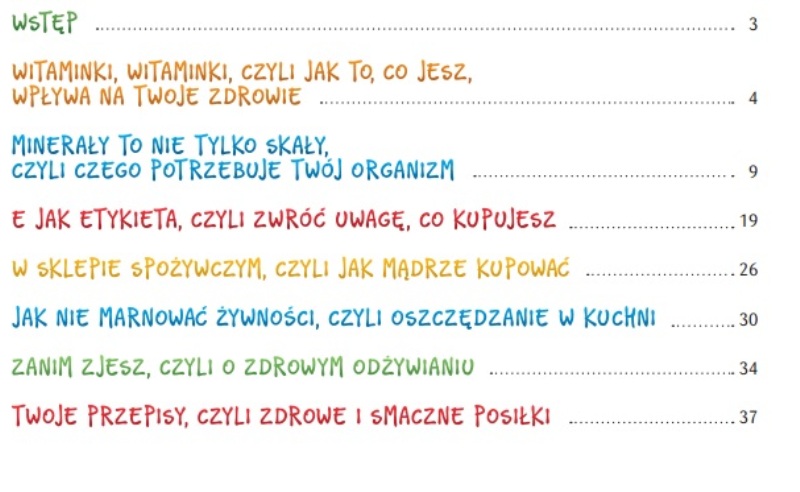 WSTĘP 3
WITAMINKI, WITAMINKI, CZYLI JAK TO, CO JESZ,
WPŁYWA NA TWOJE ZDROWIE 4
MINERAŁY TO NIE TYLKO SKAŁY,
CZYLI CZEGO POTRZEBUJE TWÓJ ORGANIZM 9
E JAK ETYKIETA, CZYLI ZWRÓĆ UWAGĘ, CO KUPUJESZ 19
W SKLEPIE SPOŻYWCZYM, CZYLI JAK MĄDRZE KUPOWAĆ 26
JAK NIE MARNOWAĆ ŻYWNOŚCI, CZYLI OSZCZĘDZANIE W KUCHNI 30
ZANIM ZJESZ, CZYLI O ZDROWYM ODŻYWIANIU 34
TWOJE PRZEPISY, CZYLI ZDROWE I SMACZNE POSIŁKI 37